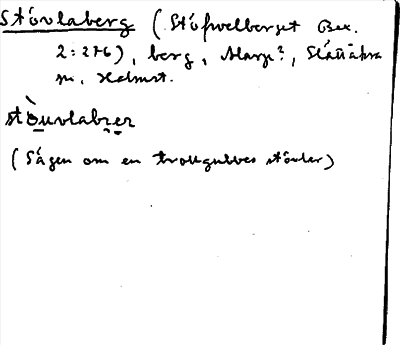 Stövlaberg (Stöfwelberget Bex.
2:276), berg, Marp?, Slättåkra
sn, Halmst.
stòuvlabrer
(Sägen om en trollgubbes stövlar)